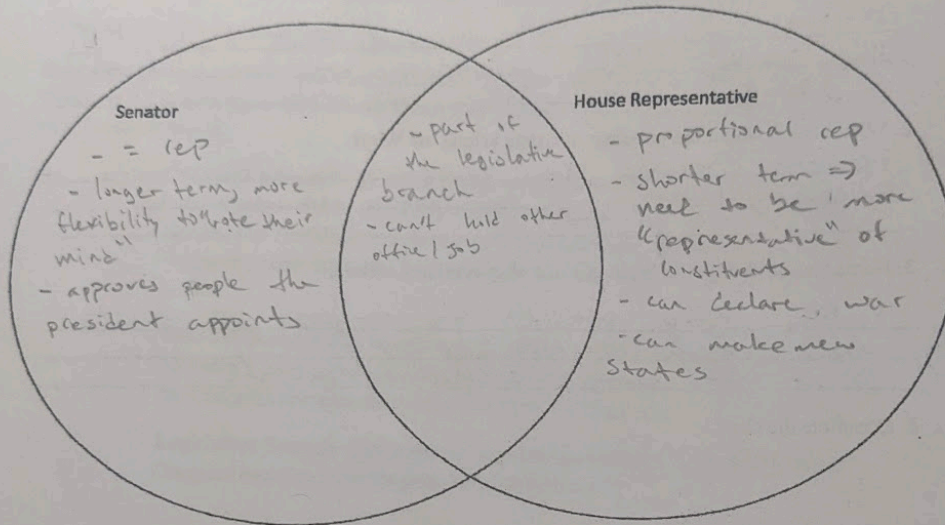 Senator
- = rep
- longer term, more
flexibility to "vote their
mind"
- approves people the
president appoints
- part of
the legislative
branch
- can't hold other
office / job
House Representative
- proportional rep
- shorter term ⇒
need to be more
"representative" of
constituents
- can declare war
- can make new
states